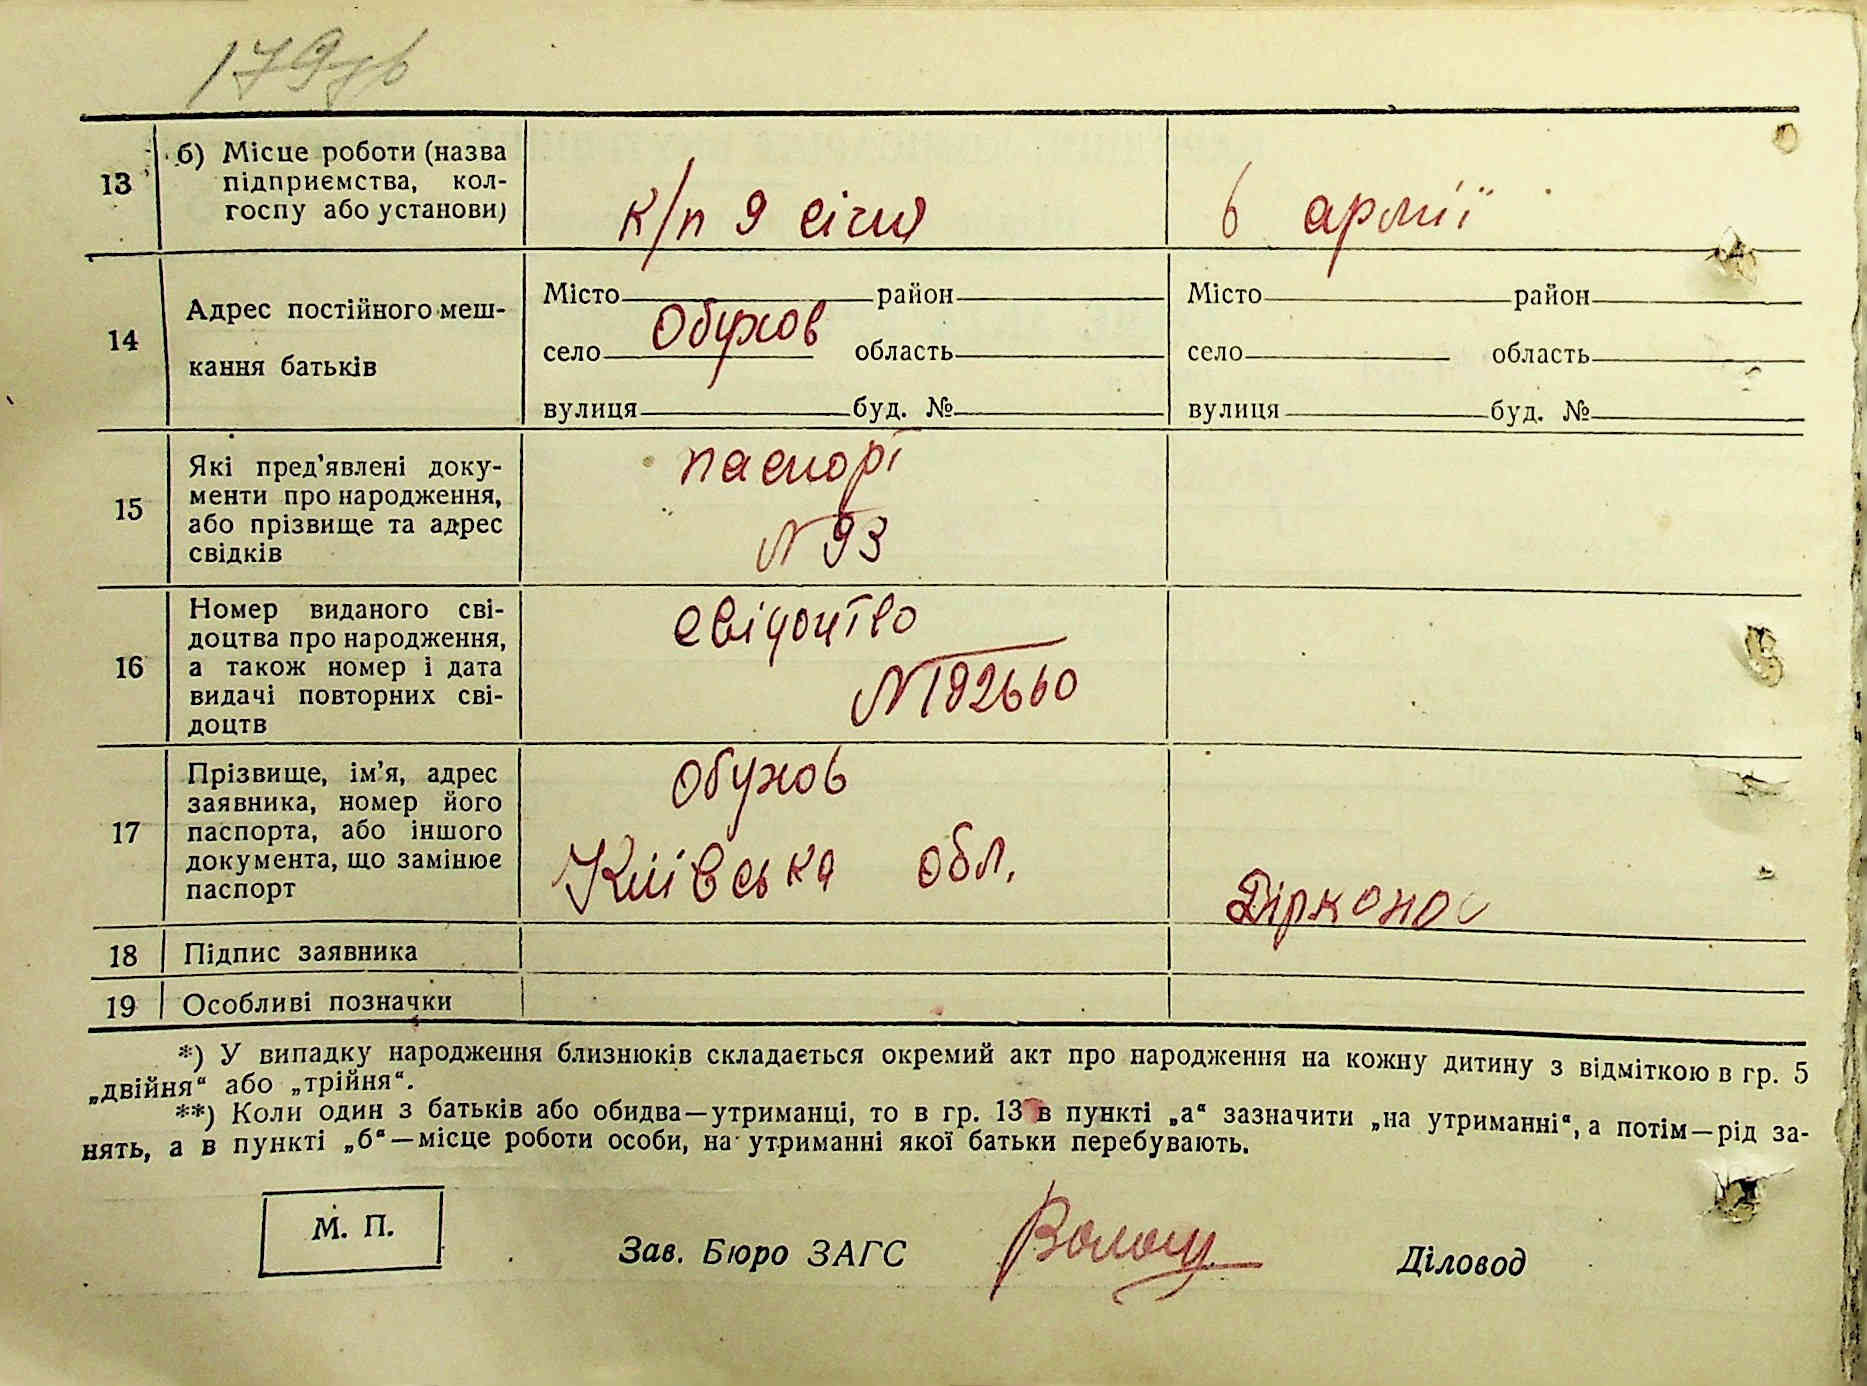 179зв
13 б) Місце роботи (назва
підприємства, кол-
госпу або установи)
к/п 9 січня
в армії
14 Адрес постійного меш-
кання батьків
Місто район
село Обухов область
вулиця буд. №
Місто район
село область
вулиця буд. №
15 Які пред'явлені доку-
менти про народження,
або прізвище та адрес
свідків
паспорт
N 93
16 Номер виданого сві-
доцтва про народження,
а також номер і дата
видачі повторних сві-
доцтв
свідоцтво
N192660
17 Прізвище, ім'я, адрес
заявника, номер його
паспорта, або іншого
документа, що замінює
паспорт
Обухов
Київська обл.
18 Підпис заявника
19 Особливі позначки
*) У випадку народження близнюків складається окремий акт про народження на кожну дитину з відміткою в гр. 5
„двійня“ або „трійня“.
**) Коли один з батьків або обидва—утриманці, то в гр. 13 в пункті „а“ зазначити „на утриманні“, а потім—рід за-
нять, а в пункті „б“—місце роботи особи, на утриманні якої батьки перебувають.
М. П.
Зав. Бюро ЗАГС
Діловод